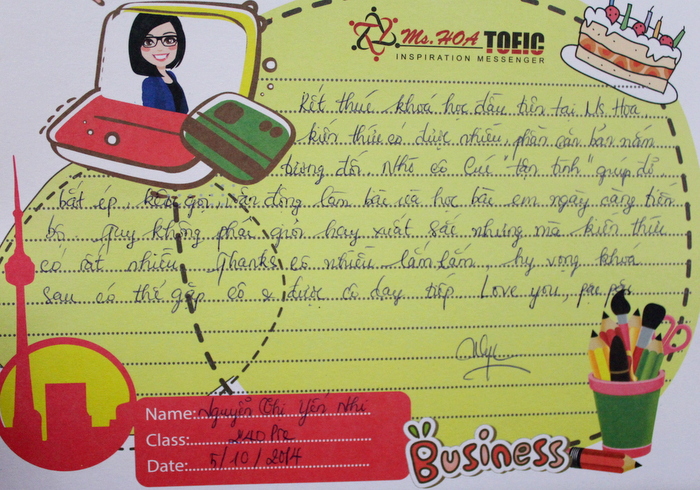 Ms. HOA TOEIC
INSPIRATION MESSENGER
Kết thúc khoá học đầu tiên tại Ms Hoa
kiến thức có được nhiều, phần căn bản nắm
tương đối. Nhờ có Cứ "tận tình" giúp đỡ
bắt ép, kêu gọi, vận động làm bài và học bài em ngày càng tiến
bộ. Tuy không phải giỏi hay xuất sắc nhưng mà kiến thức
có rất nhiều. Thanks cô nhiều lắm lắm, hy vọng khoá
sau có thể gặp cô & được cô dạy tiếp. Love you, pai pai
Name: Nguyễn Thị Yến Nhi
Class: Pre
Date: 5/10/2014
Business